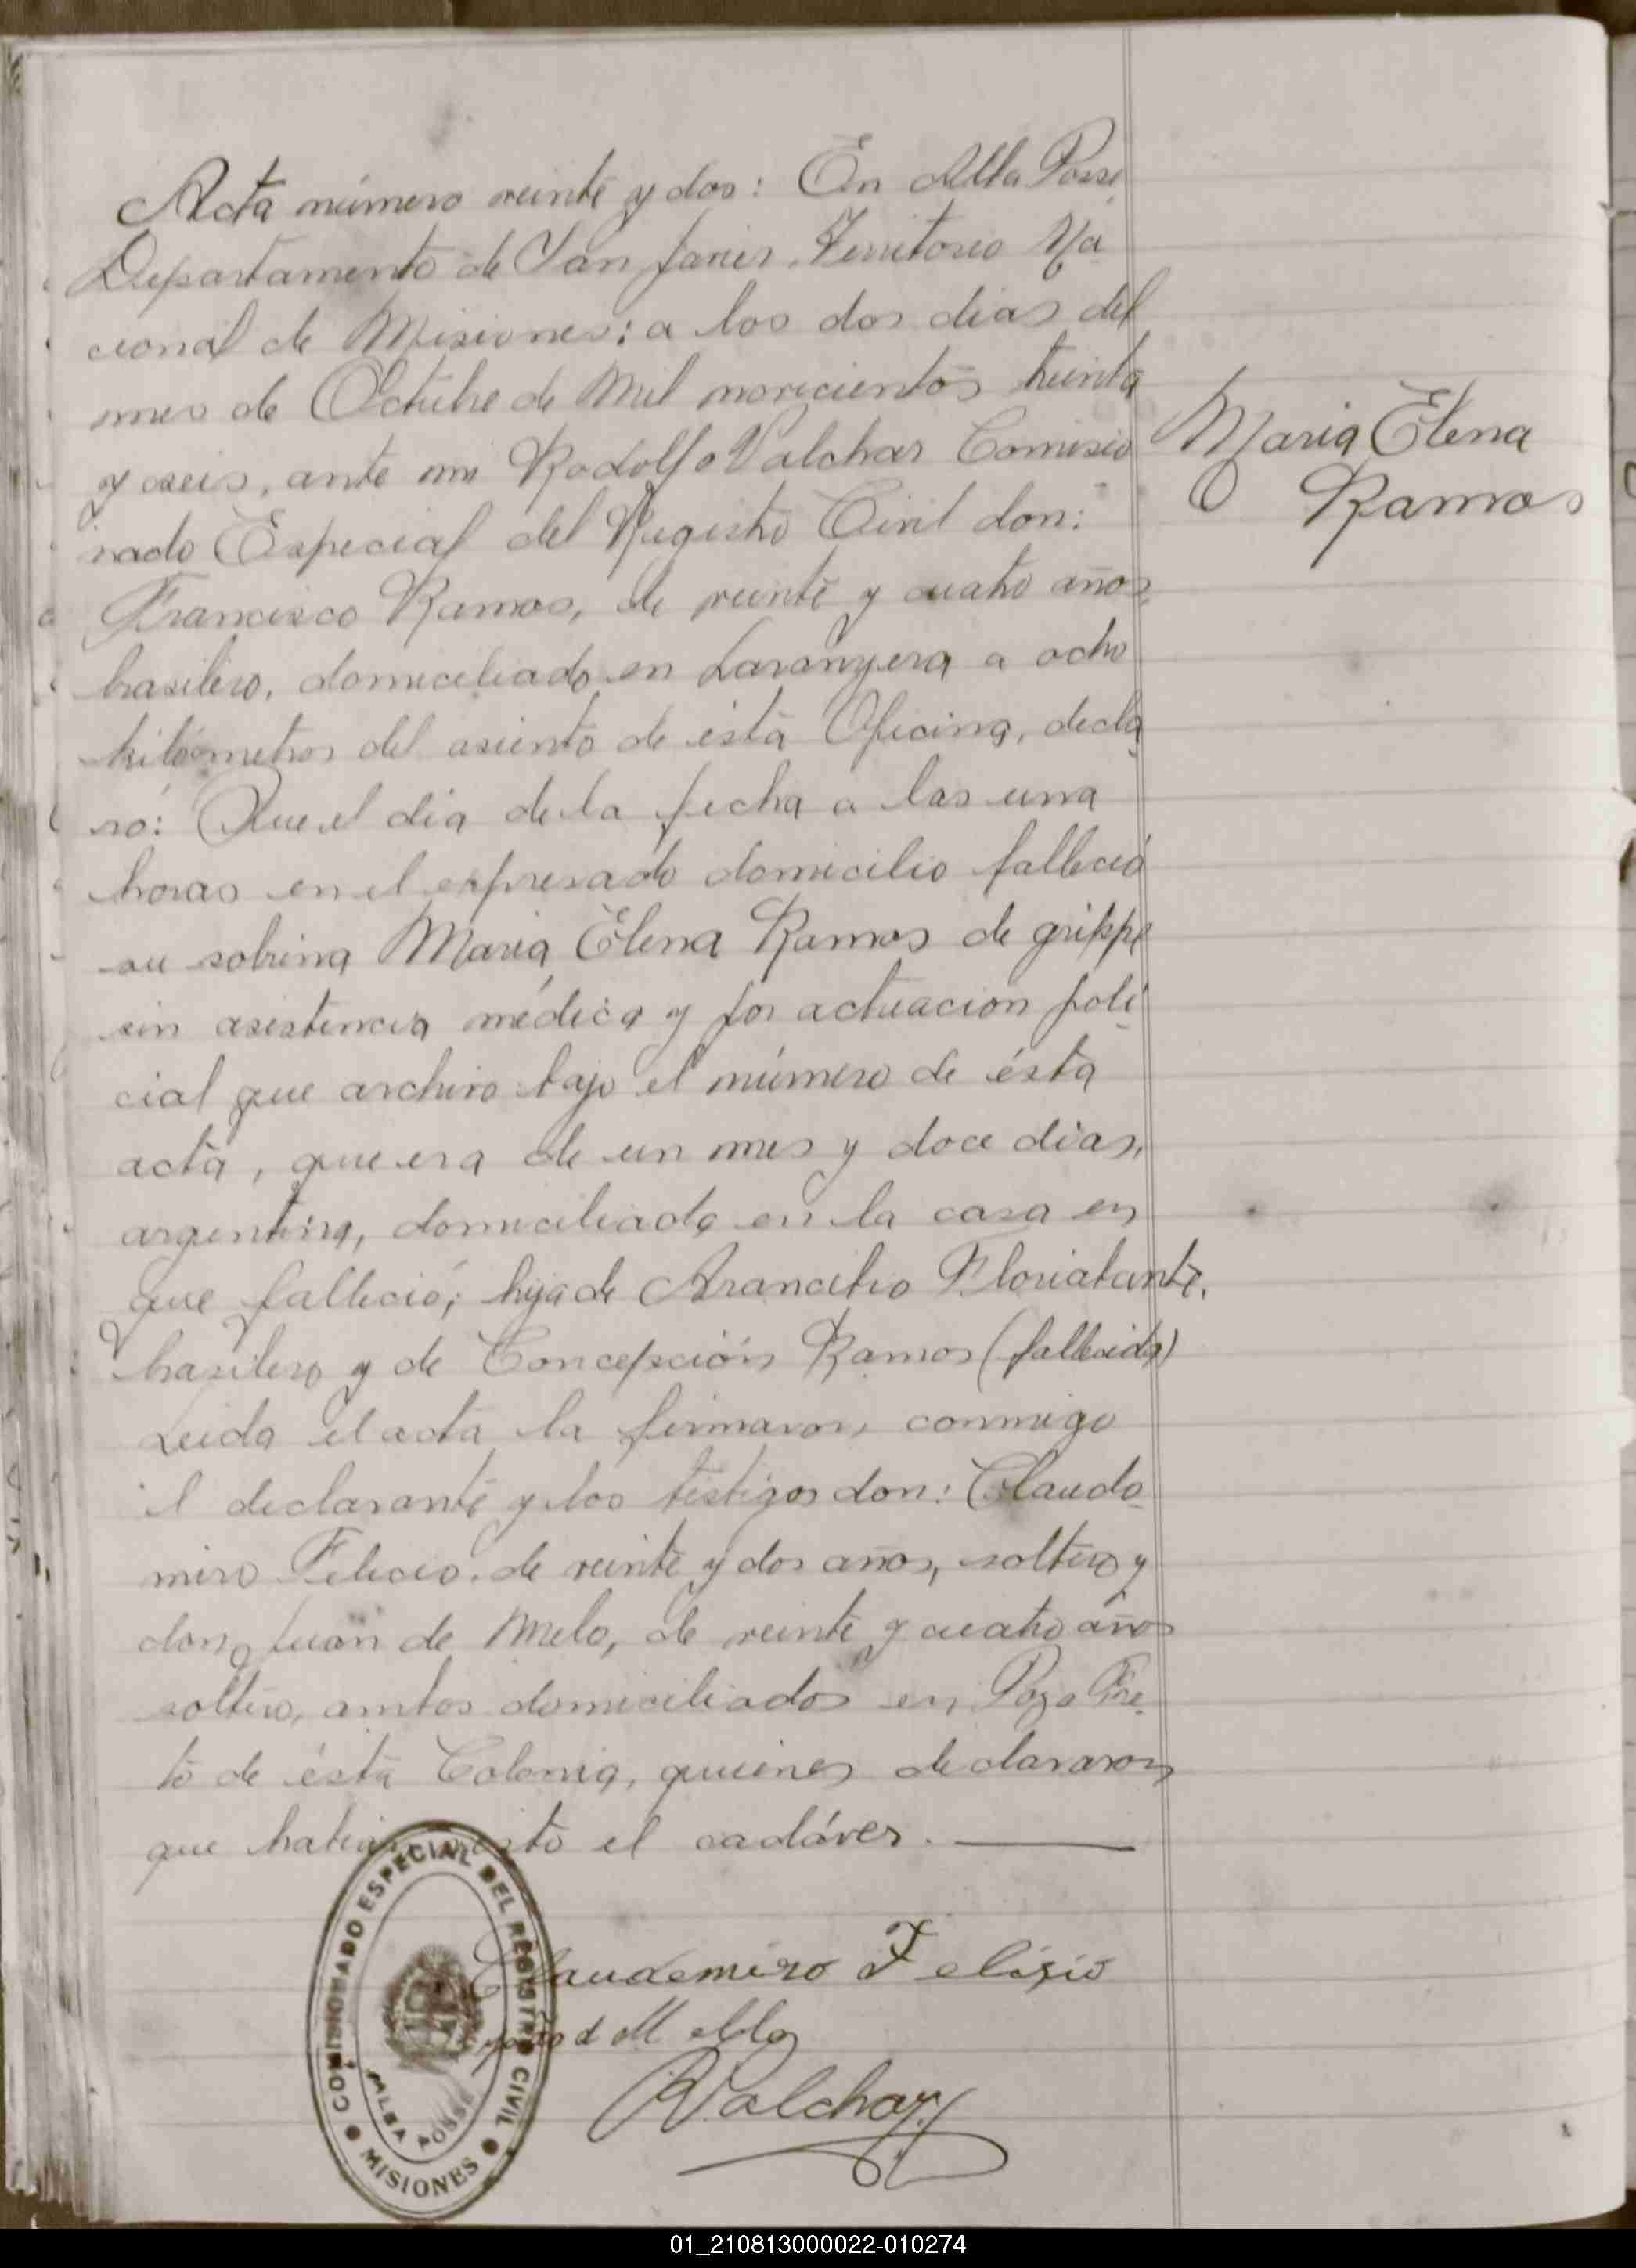 Acta número veinte y dos: En Alba Posse
Departamento de San Javier, Territorio Na
cional de Misiones: a los dos dias del
mes de Octubre de Mil novecientos treinta
y seis, ante mi Rodolfo Valchar Comisio
nado Especial del Registro Civil don:
Francisco Ramos, de veinte y cuatro años,
brasilero, domiciliado en Laranyera a ocho
kilómetros del asiento de ésta Oficina, decla
ró: Que el dia de la fecha a las una
horas en el expresado domicilio falleció
su sobrina Maria Elena Ramos de grippe
sin asistencia médica y por actuacion poli
cial que archivo bajo el número de ésta
acta, que era de un mes y doce dias,
argentina, domiciliada en la casa en
que falleció; hija de
brasilero y de Concepción Ramos (fallecida)
Leida el acta la firmaron conmigo
el declarante y los testigos don: Claudo
miro Felicio, de veinte y dos años, soltero y
don Juan de Melo, de veinte y cuatro años
soltero, ambos domiciliados en Pozo Pre
to de ésta Colonia, quienes declararon
que habian visto el cadáver.
Maria Elena
Ramos
Claudemiro Felisio
d Mello
RValchar
COMISIONADO ESPECIAL DEL REGISTRO CIVIL
ALBA POSSE
MISIONES
01_210813000022-010274